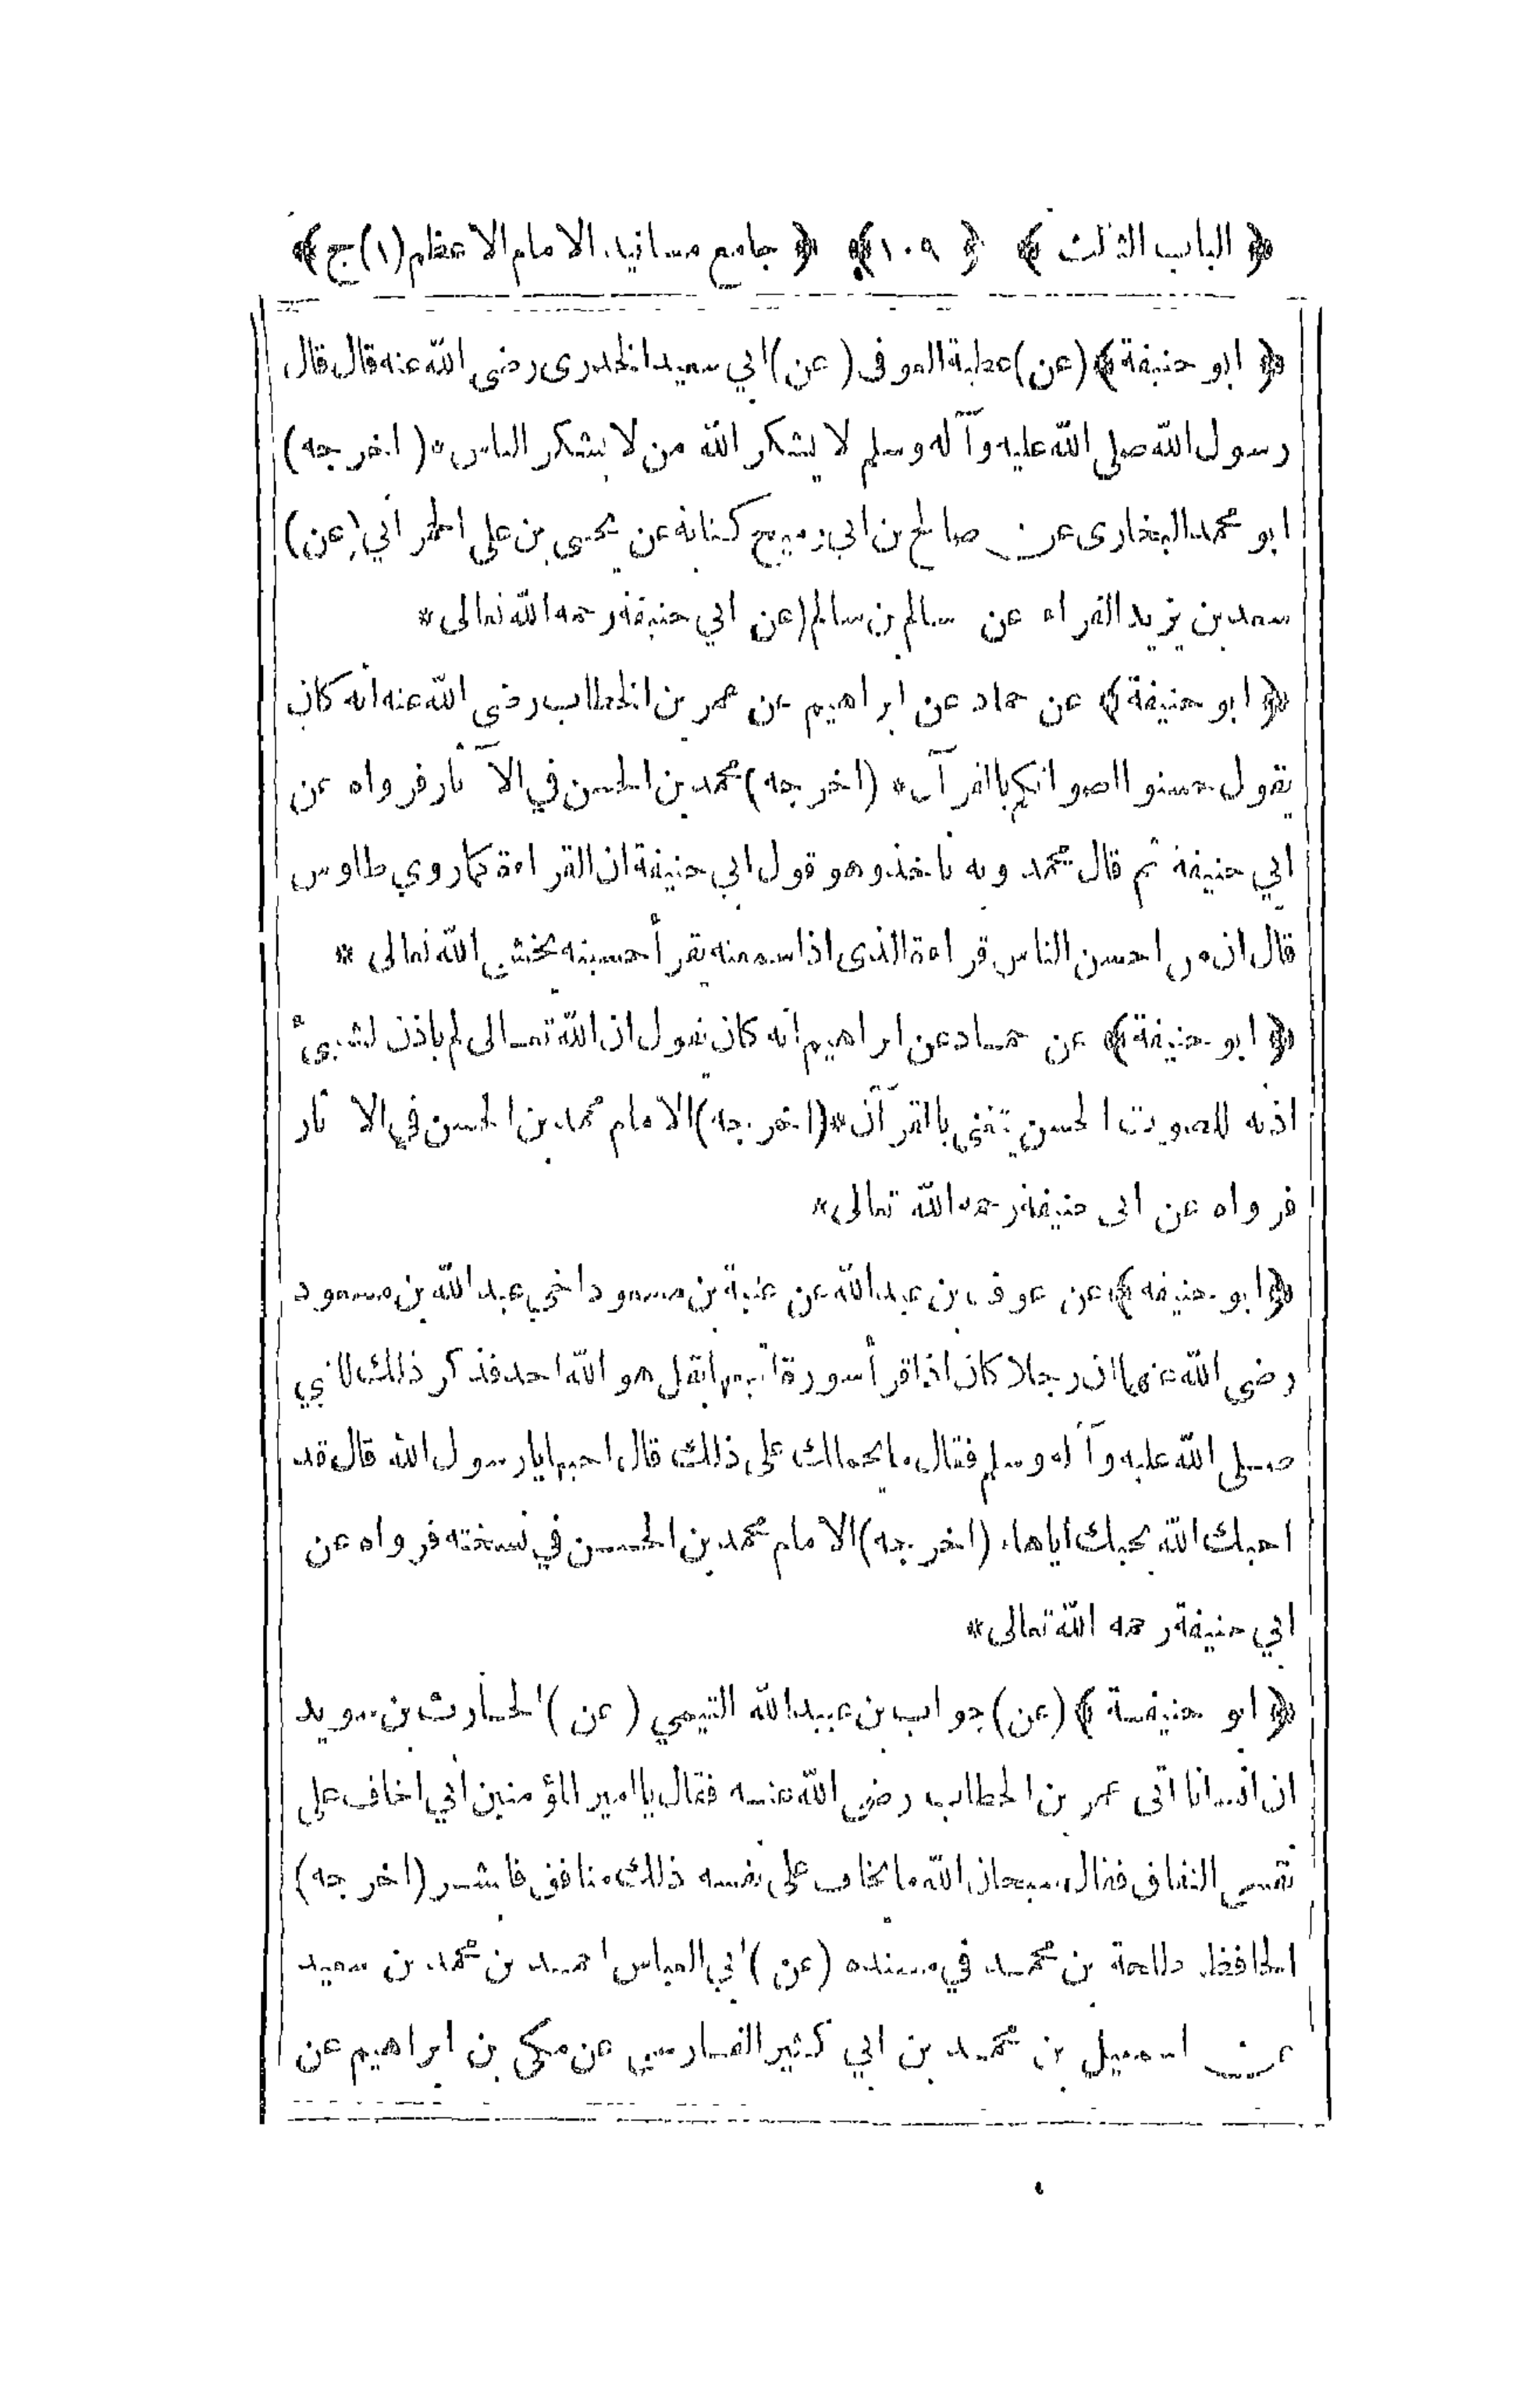 ﴿ الباب الثالث ﴾ ﴿ ١٠٩ ﴾ ﴿ جامع مسانيد الامام الاعظم (١) ج ﴾
﴿ ابو حنيفة ﴾ (عن) عطية العوفى (عن) ابي سعيد الخدرى رضى الله عنه قال قال
رسول الله صلى الله عليه وآله وسلم لا يشكر الله من لا يشكر الناس * (اخرجه)
ابو محمد البخارى عن صالح بن ابي رميح كتابة عن يحيى بن على الحمرانى (عن)
سعد بن يزيد الفراء عن سالم بن سالم (عن ابي حنيفة رحمه الله تعالى *
﴿ ابو حنيفة ﴾ عن حماد عن ابراهيم عن عمر بن الخطاب رضى الله عنه انه كان
يقول حسنوا اصواتكم بالقرآن * (اخرجه) محمد بن الحسن في الآثار فرواه عن
ابي حنيفة ثم قال محمد وبه ناخذ وهو قول ابي حنيفة ان القراءة كما روي طاوس
قال ان من احسن الناس قراءة الذى اذا سمعته يقرأ حسبته يخشى الله تعالى *
﴿ ابو حنيفة ﴾ عن حماد عن ابراهيم انه كان يقول ان الله تعالى لم ياذن لشيئ
اذنه للصوت الحسن يتغنى بالقرآن * (اخرجه) الامام محمد بن الحسن في الاثار
فرواه عن ابى حنيفة رحمه الله تعالى *
﴿ ابو حنيفه ﴾ عن عوف بن عبد الله عن عتبة بن مسعود اخي عبد الله بن مسعود
رضى الله عنهما ان رجلا كان اذا قرأ سورة اتبعها بقل هو الله احد فذكر ذلك للنبي
صلى الله عليه وآله وسلم فقال ما يحملك على ذلك قال احبها يا رسول الله قال قد
احبك الله بحبك اياها * (اخرجه) الامام محمد بن الحسن في نسخته فرواه عن
ابي حنيفة رحمه الله تعالى *
﴿ ابو حنيفة ﴾ (عن) جواب بن عبيد الله التيمي (عن) الحارث بن سويد
ان انسانا اتى عمر بن الخطاب رضى الله عنه فقال يا امير المؤمنين انى اخاف على
نفسى النفاق فقال سبحان الله ما يخاف على نفسه ذلك منافق فابشر (اخرجه)
الحافظ طلحة بن محمد في مسنده (عن) ابي العباس احمد بن محمد بن سعيد
عن اسمعيل بن محمد بن ابي كثير الفارسي عن مكى بن ابراهيم عن